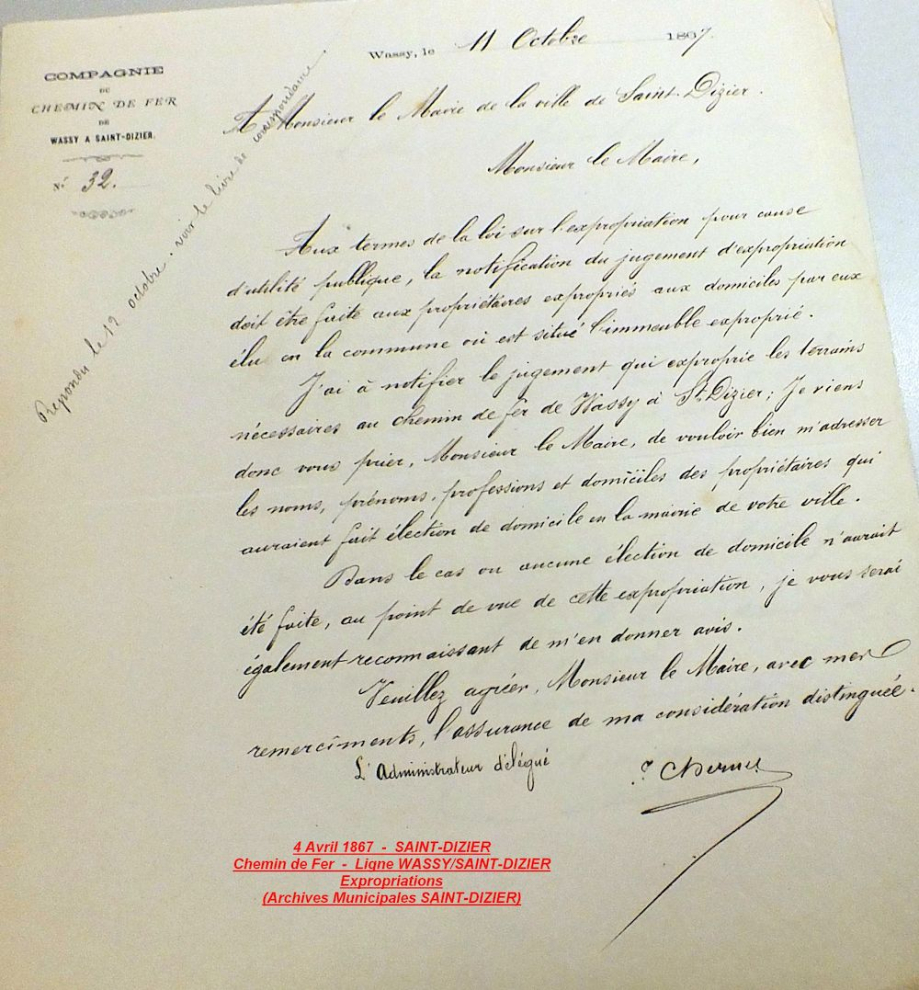 COMPAGNIE
DU
CHEMIN DE FER
DE
WASSY A SAINT-DIZIER.
N.° 32.
Wassy, le 11 Octobre 1867.
Repondu le 12 octobre. voir le livre de correspondance
A Monsieur le Maire de la ville de Saint-Dizier.
Monsieur le Maire,
Aux termes de la loi sur l'expropriation pour cause
d'utilité publique, la notification du jugement d'expropriation
doit être faite aux propriétaires expropriés aux domiciles par eux
élu en la commune où est situé l'immeuble exproprié.
J'ai à notifier le jugement qui exproprie les terrains
nécessaires au chemin de fer de Wassy à St. Dizier; Je viens
donc vous prier, Monsieur le Maire, de vouloir bien m'adresser
les noms, prénoms, professions et domiciles des propriétaires qui
auraient fait élection de domicile en la mairie de votre ville.
Dans le cas ou aucune élection de domicile n'aurait
été faite, au point de vue de cette expropriation, je vous serai
également reconnaissant de m'en donner avis.
Veuillez agréer, Monsieur le Maire, avec mes
remerciments, l'assurance de ma considération distinguée.
L'Administrateur délégué
4 Avril 1867 - SAINT-DIZIER
Chemin de Fer - Ligne WASSY/SAINT-DIZIER
Expropriations
(Archives Municipales SAINT-DIZIER)